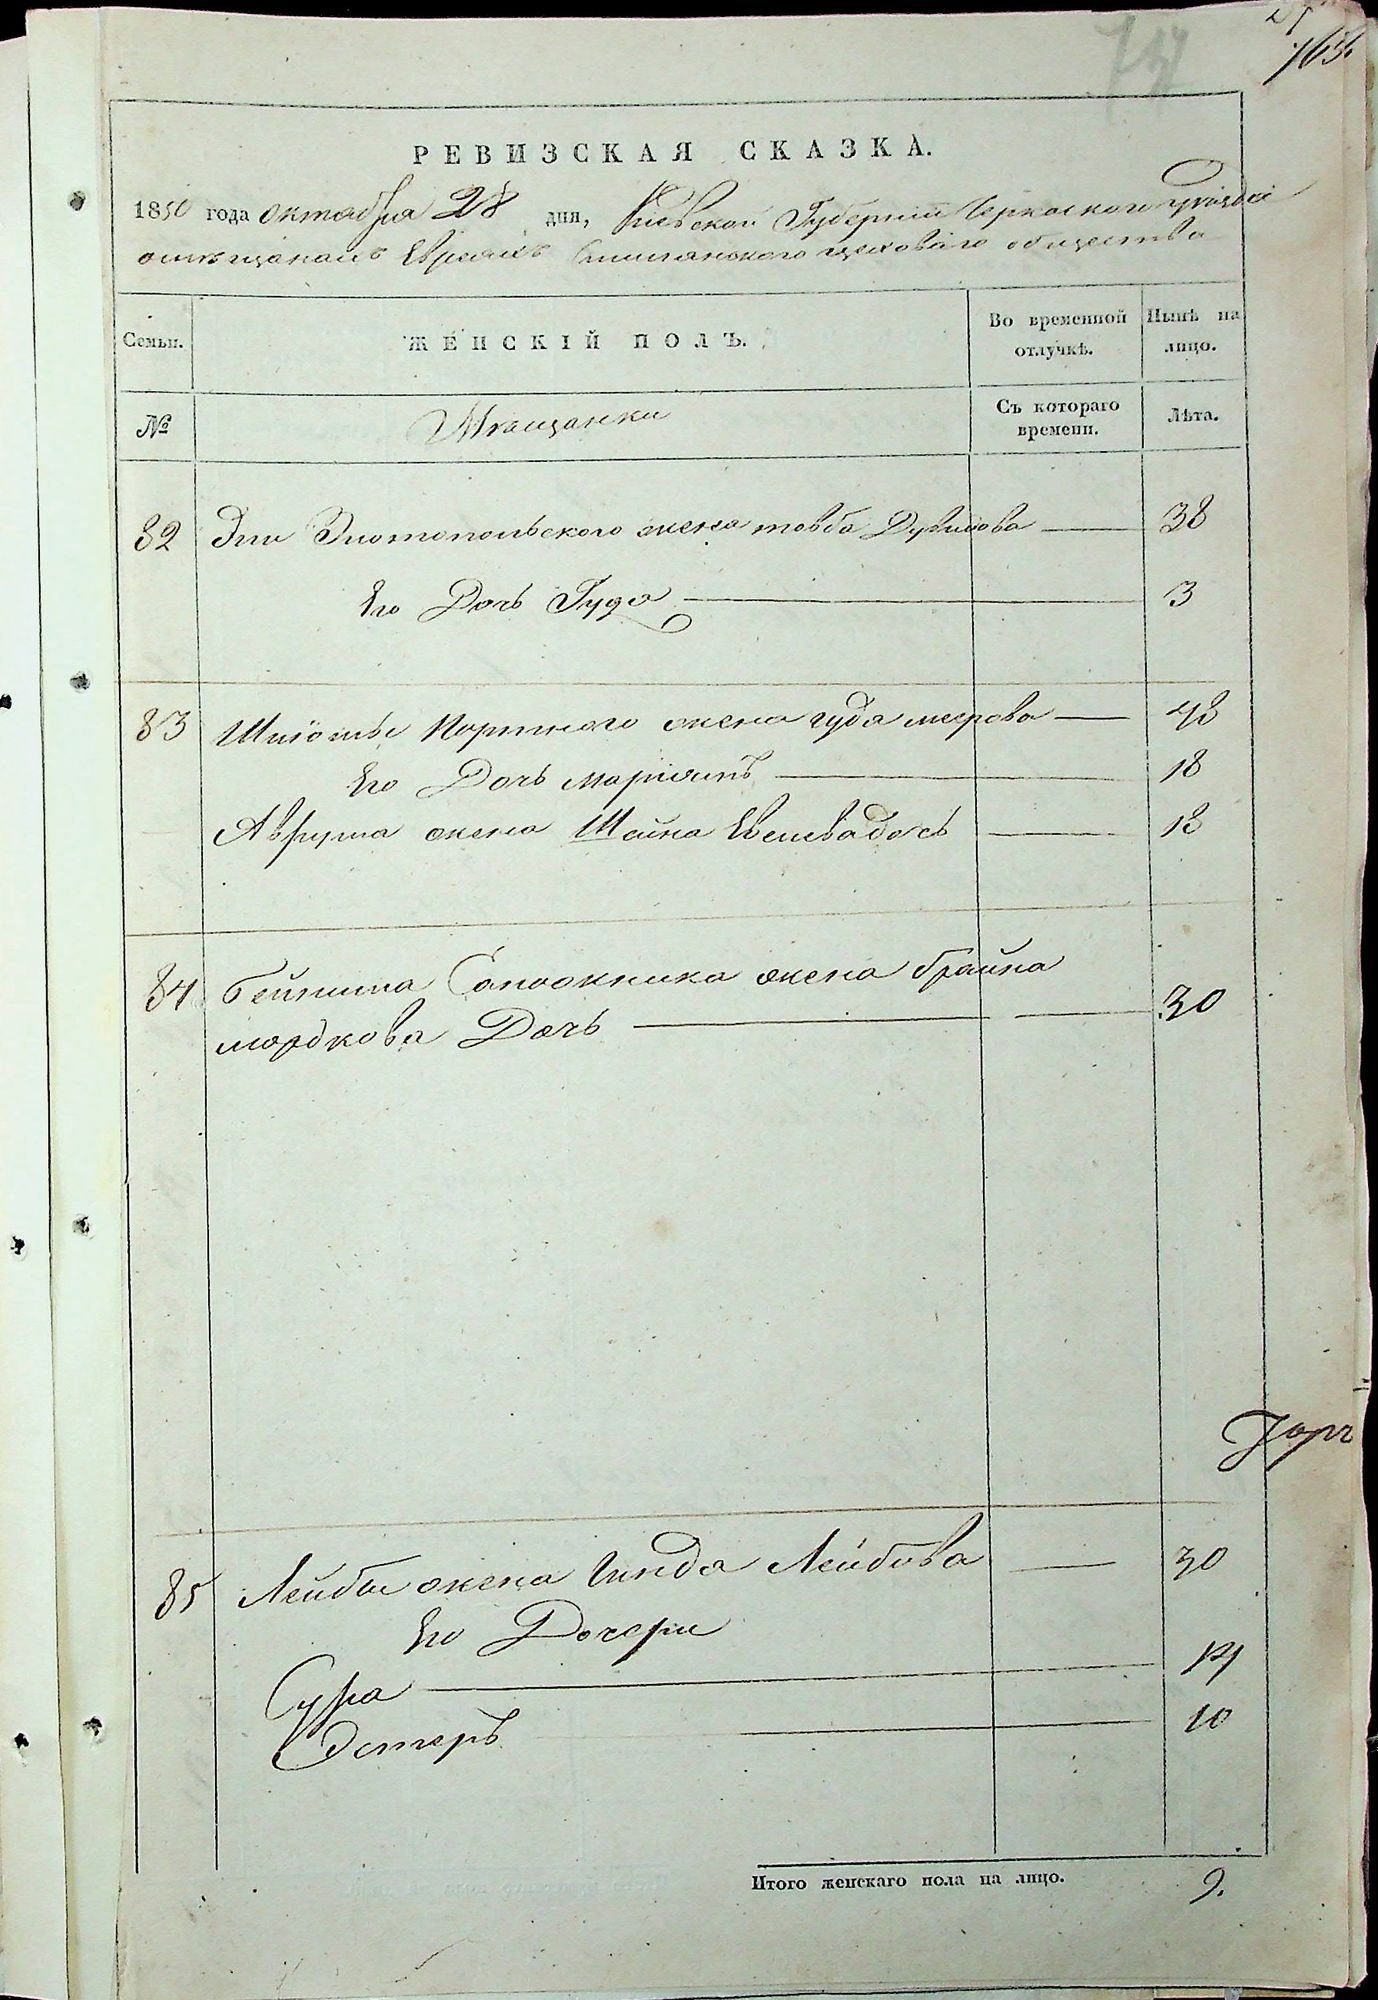 763
РЕВИЗСКАЯ СКАЗКА.
1850 года октября 28 дня, Киевской Губернии Черкаского уезда
о мещанахъ Евреяхъ Смилянского цехового общества
Семьи.
ЖЕНСКІЙ ПОЛЪ.
Во временной отлучкѣ.
Нынѣ на лицо.
№
Мещанки
Съ котораго времени.
Лѣта.
82 Жена товба — 38
Его Дочь — 3
83 Портного жена гудя меерова — 48
Его Дочь мариямъ — 18
Аврума жена Шейна — 18
84 Сапожника жена брайна
мордкова Дочь — 30
85 Лейбы жена Гинда Лейбова — 30
Его Дочери
Сура — 14
Эстеръ — 10
Итого женскаго пола на лицо. 9.